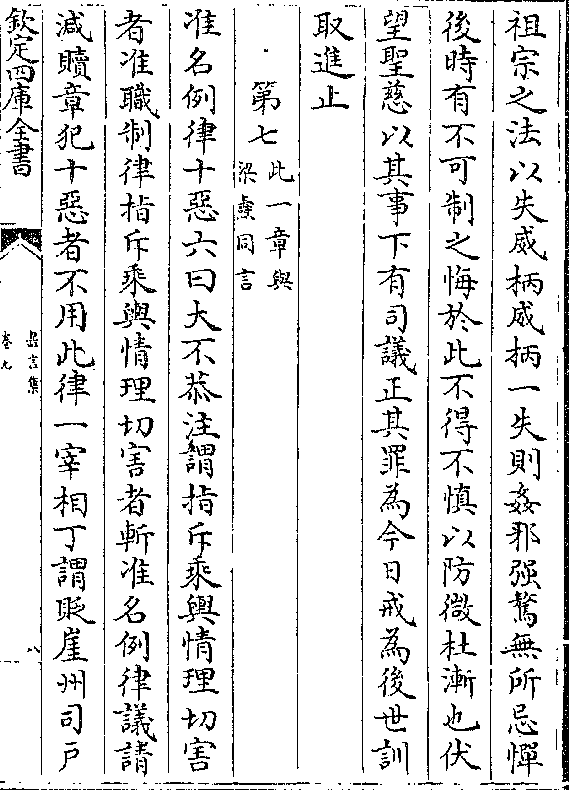 祖宗之法以失威柄威柄一失則姦邪强驁無所忌憚
後時有不可制之悔於此不得不慎以防微杜漸也伏
望聖慈以其事下有司議正其罪為今日戒為後世訓
取進止
第七此一章與
梁燾同言
准名例律十惡六曰大不恭注謂指斥乘輿情理切害
者准職制律指斥乘輿情理切害者斬准名例律議請
減贖章犯十惡者不用此律一宰相丁謂貶崖州司戶
欽定四庫全書
盡言集
卷九
八